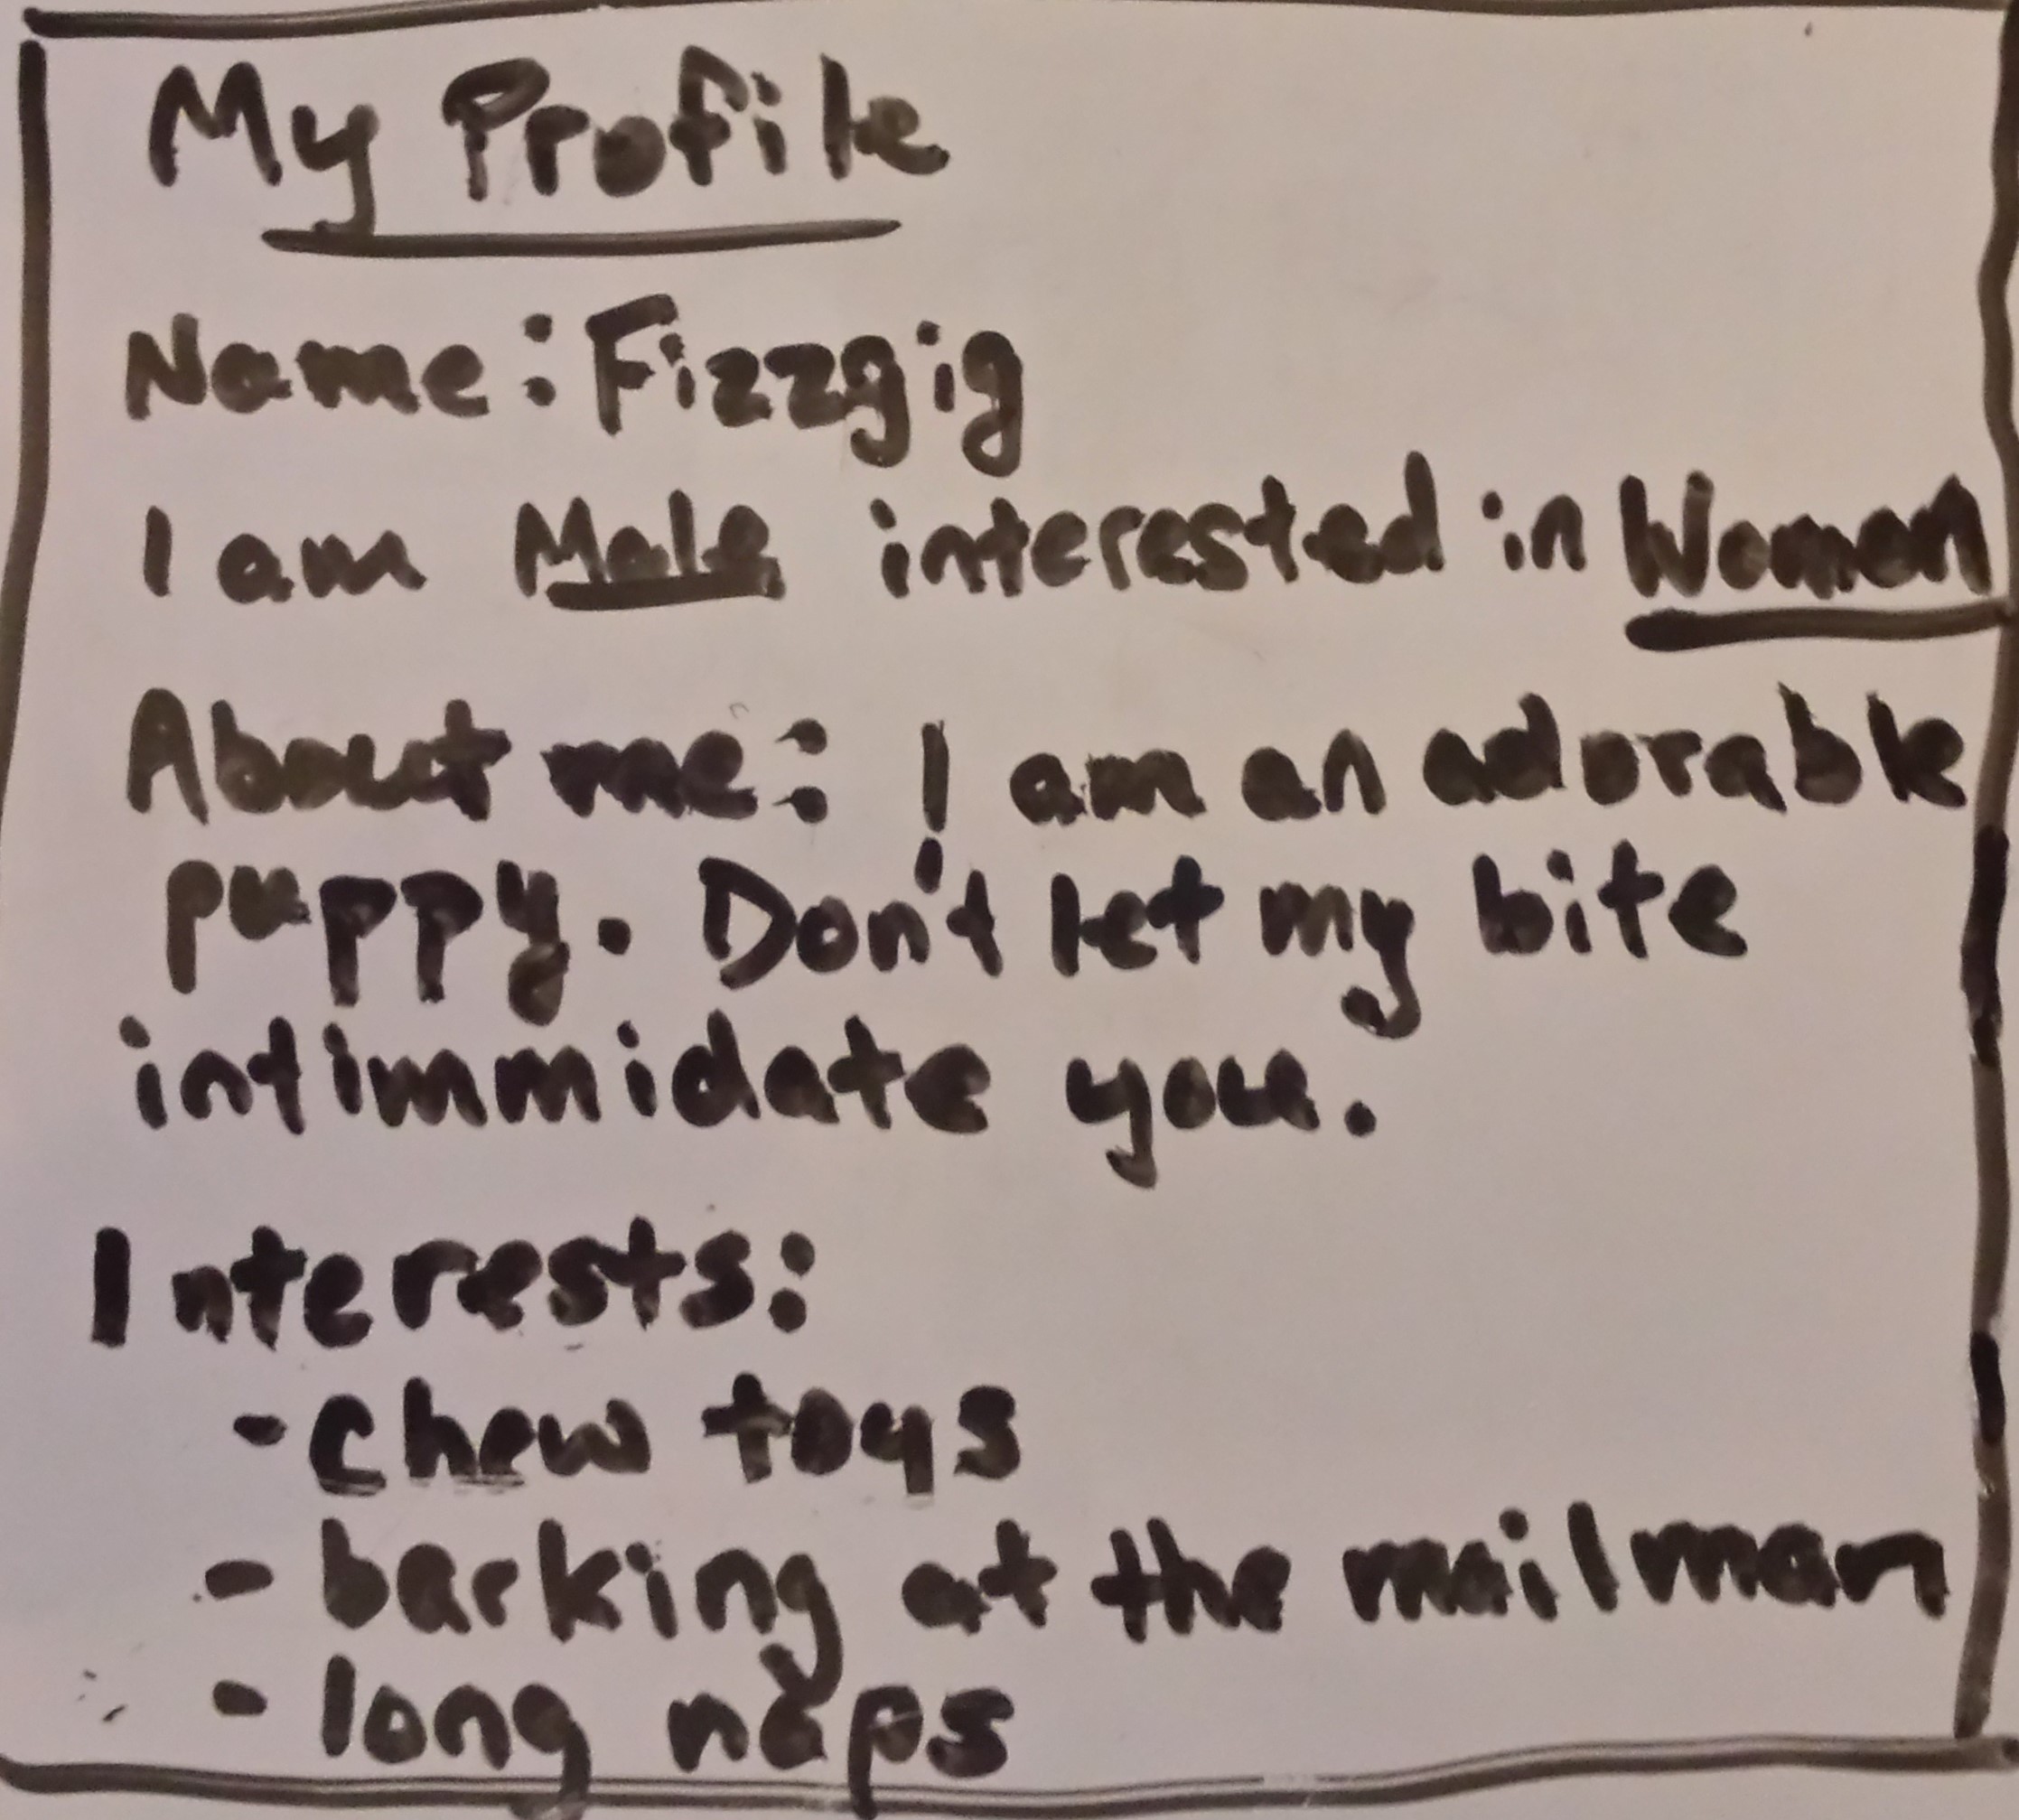 My Profile
Name: Fizzgig
I am Male interested in Women
About me: I am an adorable
puppy. Don't let my bite
intimmidate you.
Interests:
- chew toys
- barking at the mailman
- long naps